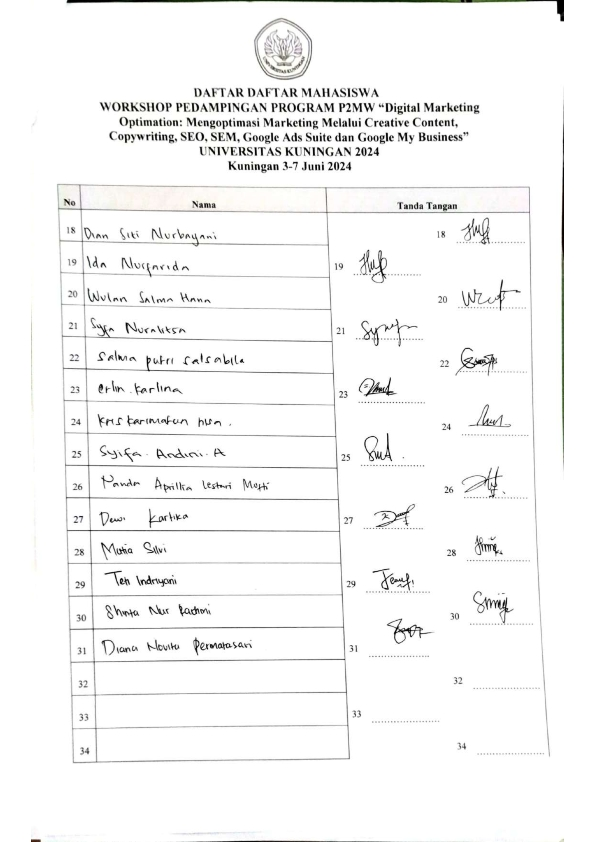 UNIVERSITAS KUNINGAN
DAFTAR DAFTAR MAHASISWA
WORKSHOP PEDAMPINGAN PROGRAM P2MW “Digital Marketing
Optimation: Mengoptimasi Marketing Melalui Creative Content,
Copywriting, SEO, SEM, Google Ads Suite dan Google My Business”
UNIVERSITAS KUNINGAN 2024
Kuningan 3-7 Juni 2024
No Nama Tanda Tangan
18 Dian Siti Nurbayani 18
19 Ida Nurfarida 19
20 Wulan Salma Hana 20
21 Syfa Nuralitsa 21
22 Salma putri salsabila 22
23 erlin karlina 23
24 kris karimatun 24
25 Syifa. Andini. A 25
26 Nanda Aprillia Lestari 26
27 Dewi Kartika 27
28 Mutia Silvi 28
29 Teti Indriyani 29
30 Shinta Nur 30
31 Diana Novita Permatasari 31
32 32
33 33
34 34